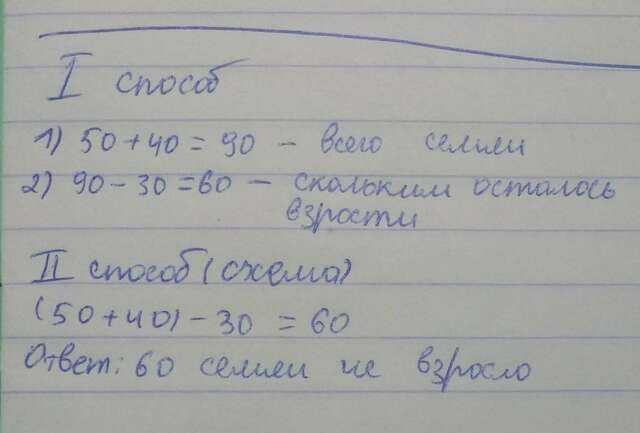 I способ
1) 50 + 40 = 90 - всего семян
2) 90 - 30 = 60 - скольким осталось
взрости
II способ (схема)
(50 + 40) - 30 = 60
Ответ: 60 семян не взросло